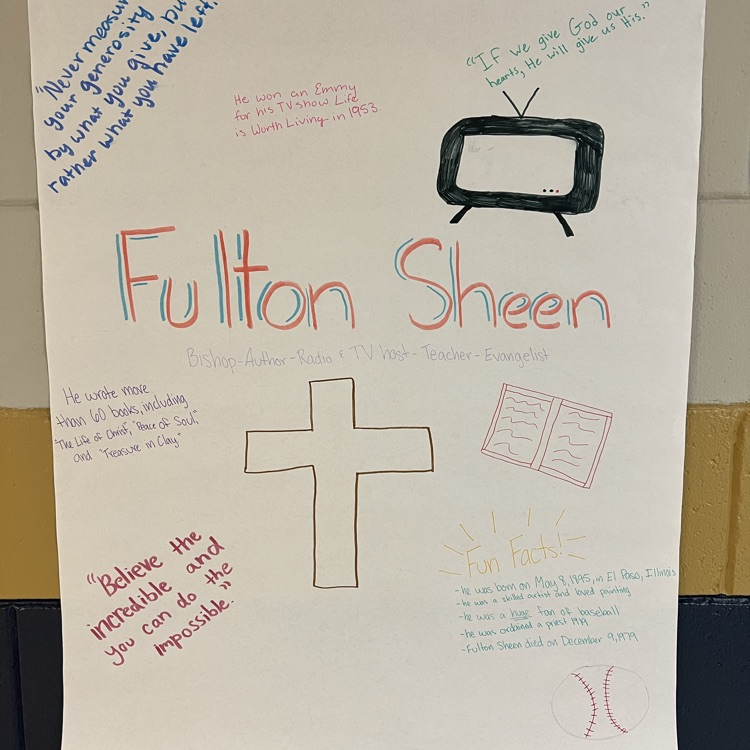 "Never measure
your generosity
by what you give, but
rather what you have left."
"If we give God our
hearts, He will give us His."
He won an Emmy
for his TV show Life
is Worth Living in 1953.
Fulton Sheen
Bishop-Author-Radio & TV host-Teacher-Evangelist
He wrote more
than 60 books, including
"The Life of Christ", "Peace of Soul,"
and "Treasure in Clay"
"Believe the
incredible and
you can do the
impossible."
Fun Facts!
-he was born on May 8, 1895, in El Paso, Illinois
-he was a skilled artist and loved painting
-he was a huge fan of baseball
-he was ordained a priest 1919
-Fulton Sheen died on December 9, 1979